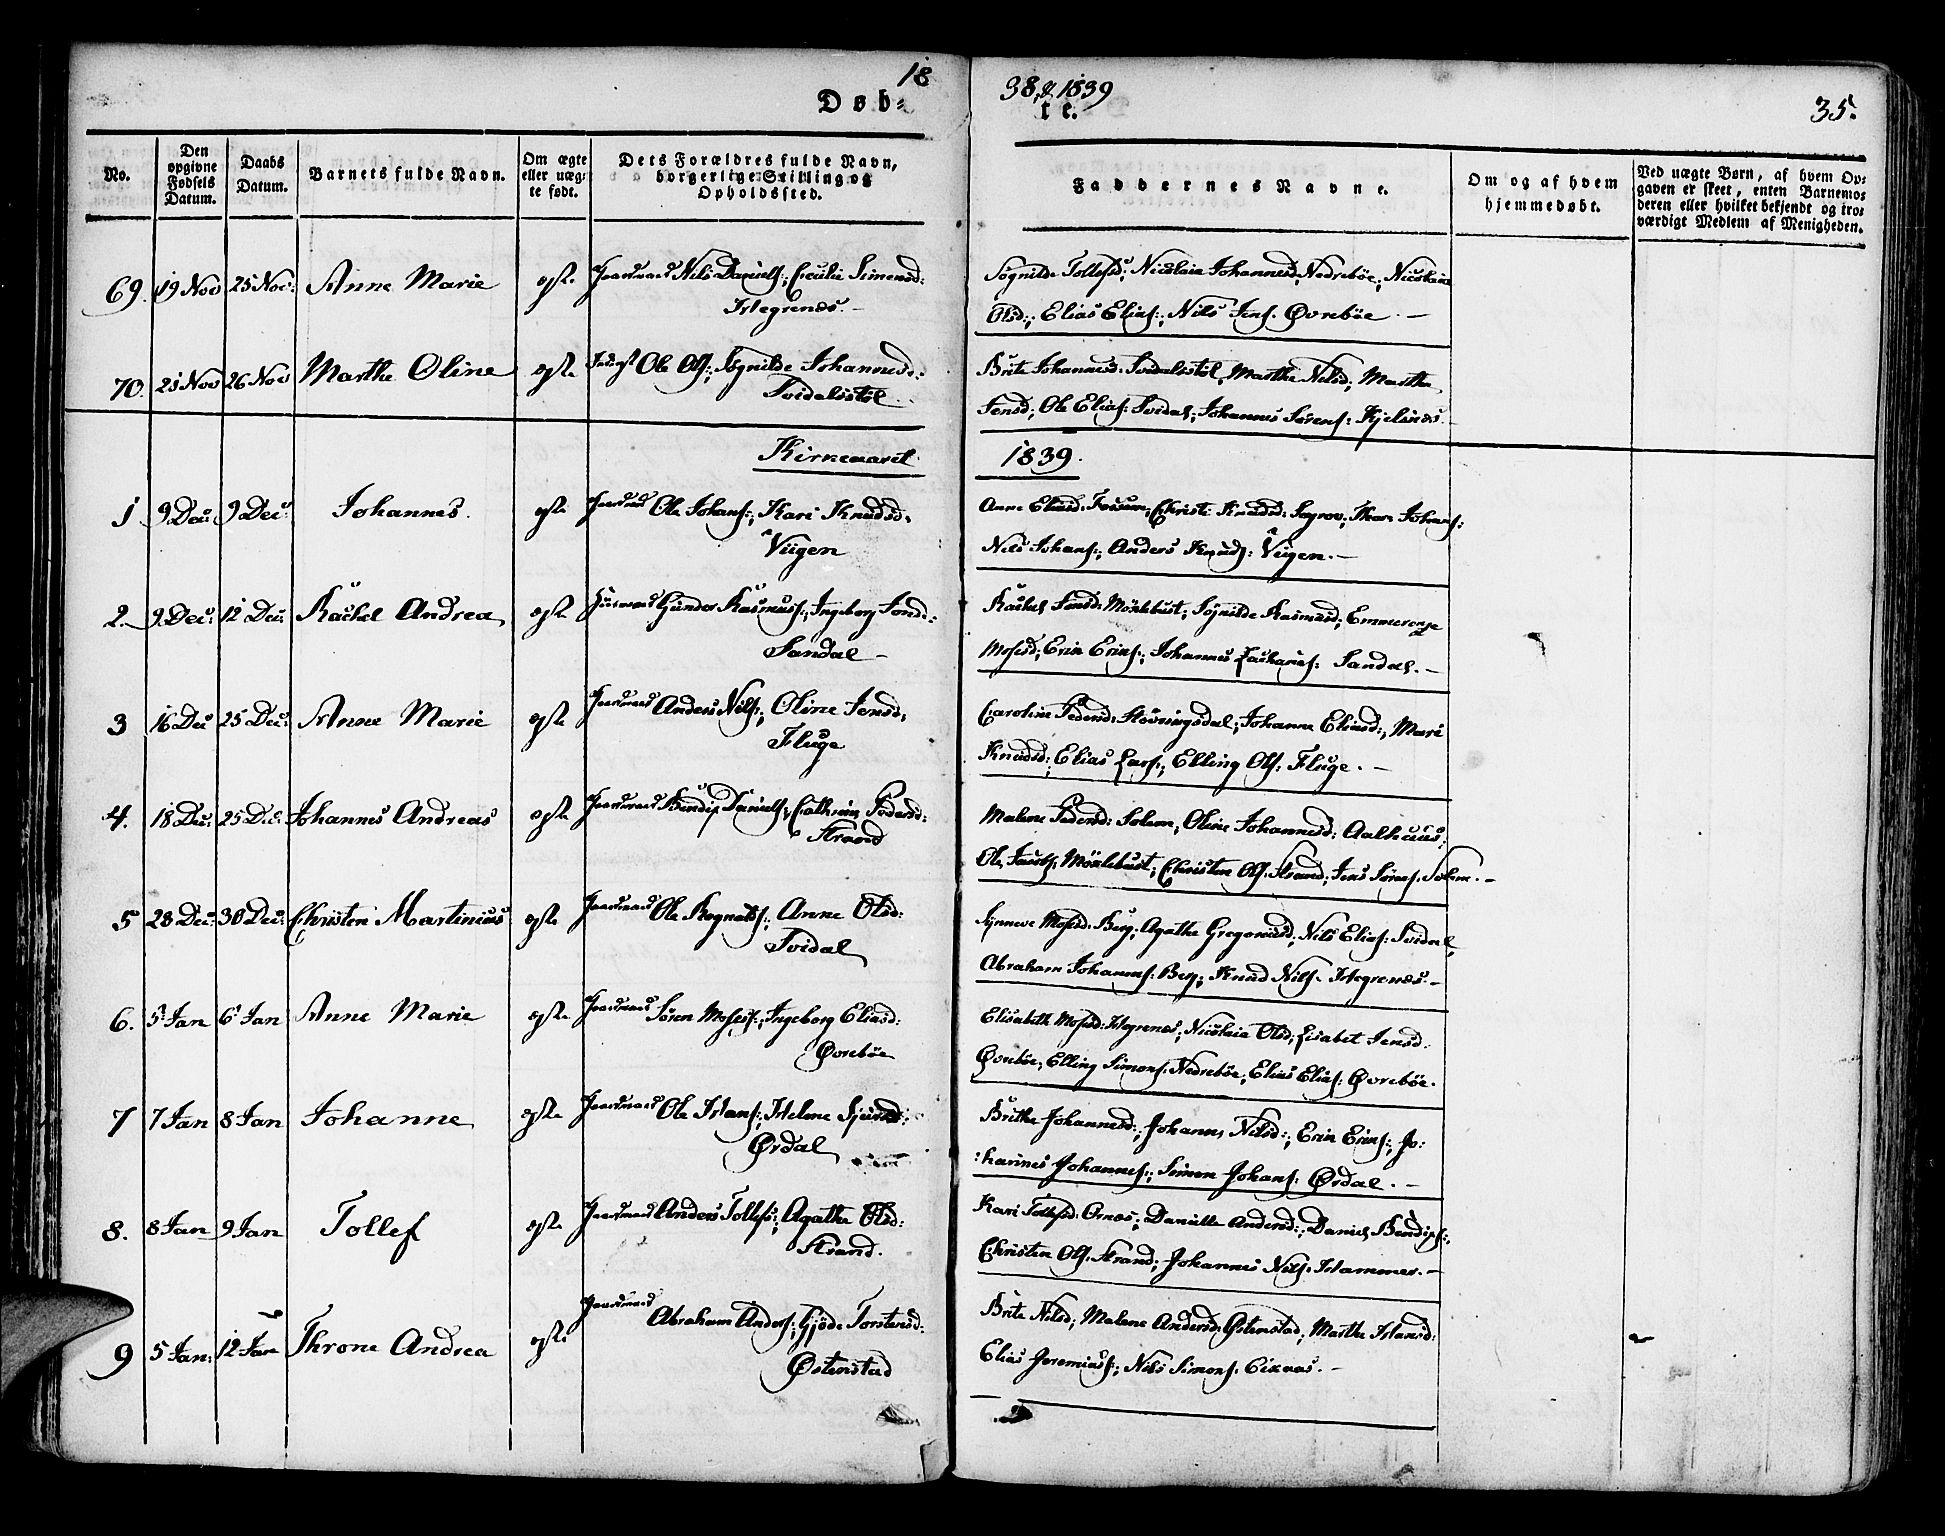 18
Døb-
38 & 1839
te.
35.
No.
Den opgivne Fødsels Datum.
Daabs Datum.
Barnets fulde Navn.
Om ægte eller uægte født.
Dets Forældres fulde Navn, borgerlige Stilling og Opholdssted.
Faddernes Navne.
Om og af hvem hjemmedøbt.
Ved uægte Børn, af hvem Op-
gaven er skeet, enten Barnemo-
deren eller hvilket bekjendt og tro-
værdigt Medlem af Menigheden.
69. 19 Nov 25 Nov: Anne Marie egte Gaardmand Nils Daniels:, Cecilie Simensd:
Hegrenes.
Søgnilde Tollefsd:, Nicolaia Johannesd, Nedreböe, Nicolaia
Olsd:, Elias Elias:, Nils Jens. Øvrebøe.
70. 21 Nov 26 Nov Marthe Oline egte Ole Ols:, Søgnilde Johannesd:
Svidalstöl
Brite Johannesd. Svidalstöl, Marthe Nilsd, Marthe
Jensd, Ole Elias: Svidal, Johannes Sørens: Kjelsnes.
Kirkeaaret
1839.
1 9 Dec: 9 Dec: Johannes. egte Gaardmand Ole Johans:, Kari Knudsd.
Viigen
Anne Eliasd. Fossum, Christi Knudsd: Søgrov, Johans:
Nils Johans:, Anders Knuds: Viigen.
2. 9 Dec: 12 Dec: Rachel Andrea egte Huusmand Gunder Rasmus:, Ingeborg Jonsd:
Sandal
Rachel Jensd. Mÿklebust, Søgnilde Rasmusd, Emmerense
Mosesd; Erik Eriks:, Johannes Zacharies: Sandal.
3 16 Dec 25 Dec: Anne Marie egte Gaardmand Anders Nils:, Oline Jensd,
Fluge
Caroline Pedersd. Støvringsdal, Johanne Eliasd:, Mari
Knudsd:, Elias Lars:, Elling Ols: Fluge.
4. 18 Dec: 25 Dec: Johannes Andreas egte Gaardmand Bendix Daniels:, Cathrine Pedersd:
Strand
Malene Pedersd: Solem, Oline Johannesd: Aalhuus,
Ole Mÿklebust, Christen Ols. Strand, Jens Sørens. Solem.
5 28 Dec: 30 Dec: Christen Martinius egte Gaardmand Ole Rognalds:, Anne Olsd:
Svidal
Synneve Mosesd. Berg, Agathe Gregoriusd, Nils Elias: Svidal,
Abraham Johannes: Berg, Knud Nils. Hegrenes.
6. 5 Jan 6 Jan Anne Marie egte Gaardmand Sören Moses:, Ingeborg Eliasd:
Øvrebøe
Elisabeth Mosesd: Hegrenes, Nicolaia Olsd, Lisabet Jensd.
Øvrebøe, Elling Simons: Nedrebøe, Elias Elias: Øvrebøe.
7 7 Jan 8 Jan Johanne egte Gaardmand Ole Hans:, Helene Sjursd:
Ørdal
Brithe Johannesd:, Johanne Nilsd:, Erik Eriks:, Jo:
:hannes Johannes:, Simon Johans: Ørdal.
8. 8 Jan 9 Jan Tollef egte Gaardmand Anders Tollefs:, Agathe Olsd:
Strand.
Kari Tollefsd: Ornes, Danielle Andersd:, Daniel Bendix:,
Christen Ols. Strand, Johannes Nils. Hammer.
9 5 Jan: 12 Jan Throne Andrea egte Gaardmand Abraham Anders:, Gjöde Torstensd:
Østenstad
Brite Nilsd, Malene Andersd. Østenstad, Marthe Hansd:
Elias Jeremias:, Nils Simons. Eiknas.